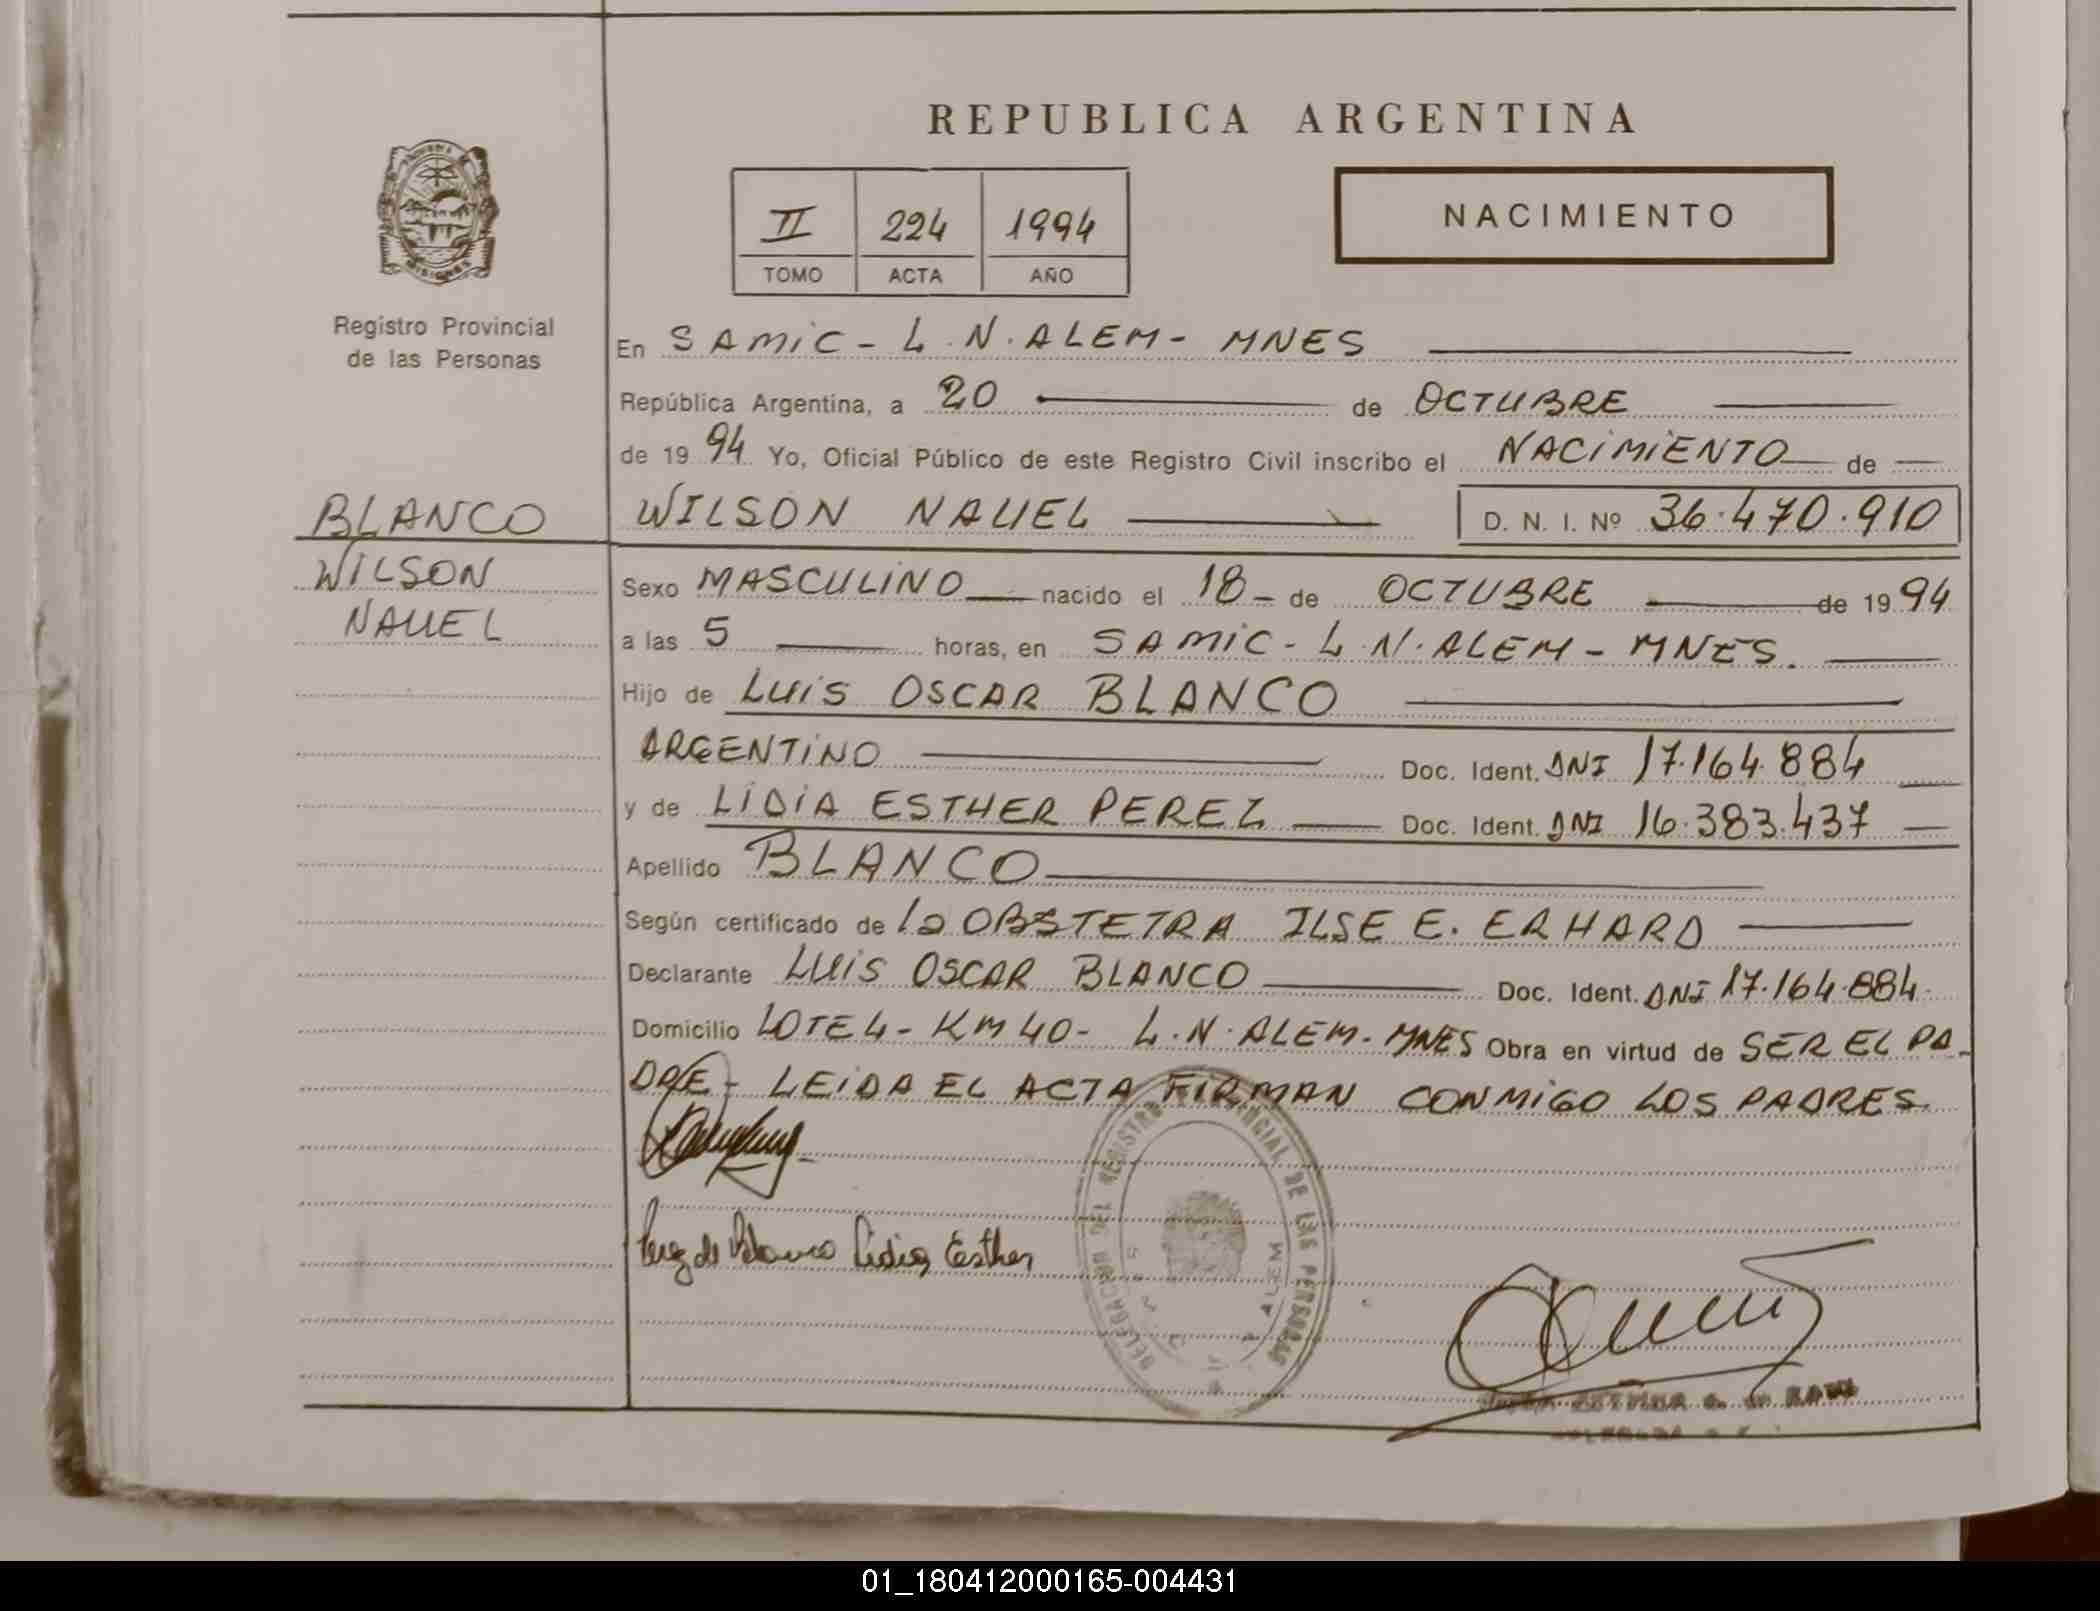 REPUBLICA ARGENTINA
II 224 1994
TOMO ACTA AÑO
NACIMIENTO
MISIONES
Registro Provincial
de las Personas
En SAMIC - L.N.ALEM - MNES
República Argentina, a 20 de OCTUBRE
de 1994 Yo, Oficial Público de este Registro Civil inscribo el NACIMIENTO de
BLANCO
WILSON
NAUEL
WILSON NAUEL D. N. I. Nº 36.470.910
Sexo MASCULINO nacido el 18 - de OCTUBRE de 1994
a las 5 horas, en SAMIC - L.N.ALEM - MNES.
Hijo de LUIS OSCAR BLANCO
ARGENTINO Doc. Ident. DNI 17.164.884
y de LIDIA ESTHER PEREZ Doc. Ident. DNI 16.383.437
Apellido BLANCO
Según certificado de la OBSTETRA ILSE E. ERHARD
Declarante LUIS OSCAR BLANCO Doc. Ident. DNI 17.164.884.
Domicilio LOTE 4 - KM 40 - L.N.ALEM - MNES Obra en virtud de SER EL PA-
DRE - LEIDA EL ACTA FIRMAN CONMIGO LOS PADRES.
DELEGACION DEL REGISTRO PROVINCIAL DE LAS PERSONAS
ALEM
de Blanco Lidia Esther
01_180412000165-004431